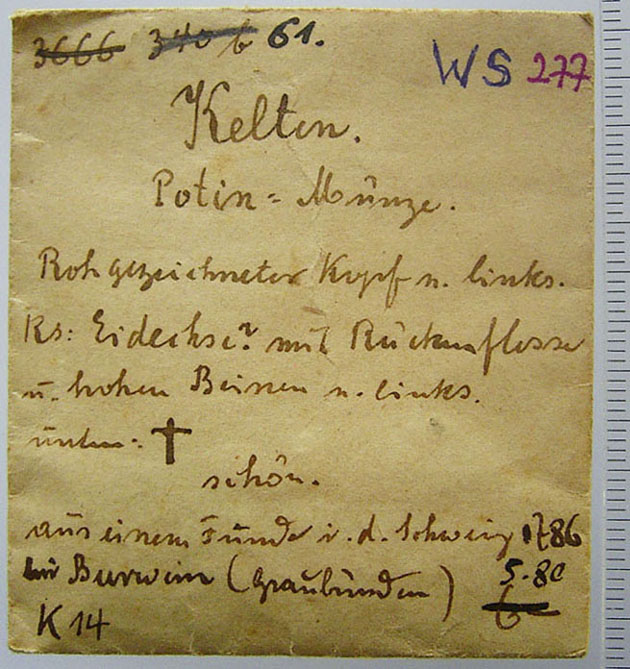 3666 340 b 61.
WS 277
Kelten.
Potin = Münze.
Roh gezeichneter Kopf n. links.
Rs: Eidechse? mit Rückenflosse
u. hohen Beinen n. links.
unten: †
schön.
aus einem Funde i. d. Schweiz 1786
bei Burwein (Graubünden)
5.80
6
K 14